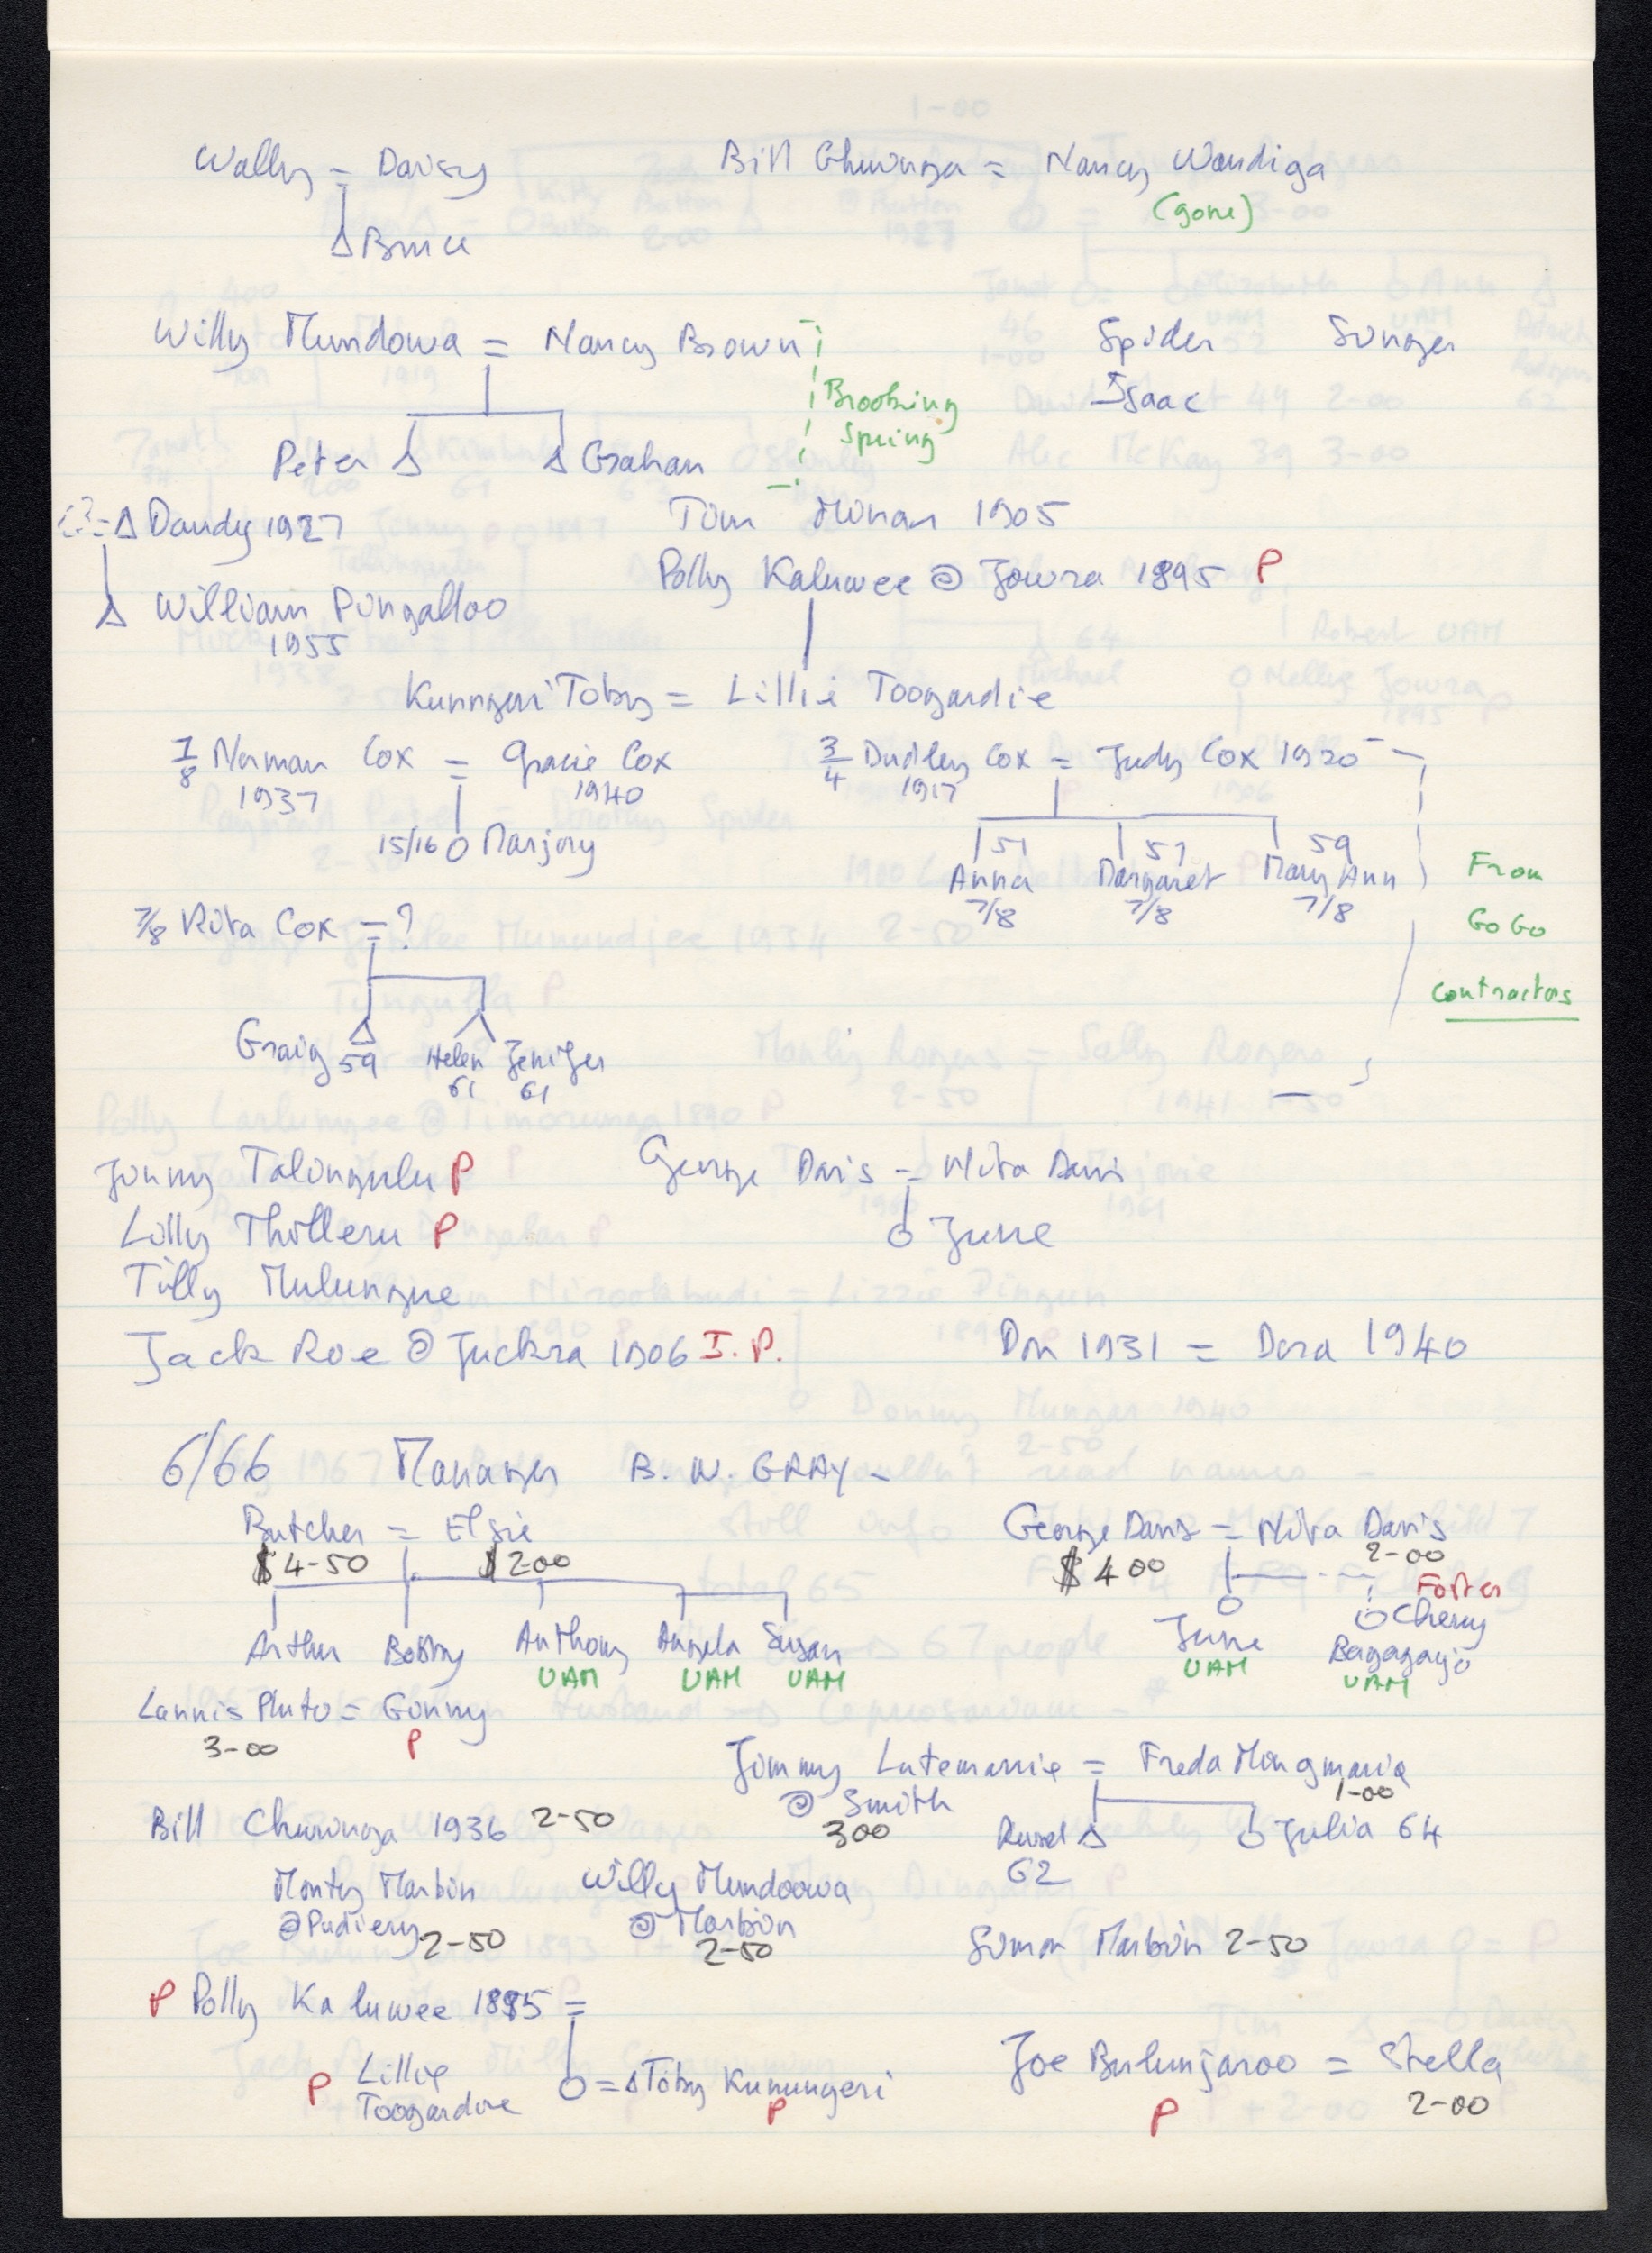 Wally = Daisy
Bill Chuwnga = Nancy Wandiga
(gone)
Bruce
Willy Mundowa = Nancy Brown
Spider Isaac
Brooking Spring
Peter Graham
Dandy 1927
Tim Minan 1905
Polly Kaluwee @ Jowra 1895 P
William Pungalloo
1955
Kunngeri Toby = Lillie Toogardie
7/8 Norman Cox = Gracie Cox
1937 1940
3/4 Dudley Cox = Judy Cox 1920
1917
15/16 Marjory
51 57 59
Anna Margaret Mary Ann
7/8 7/8 7/8
From
GoGo
contractors
7/8 Rita Cox = ?
Graig 59 Helen Jenifer
61 61
Jonny Talungulu P
George Davis = Nita Davis
Lilly Thilleru P
June
Tilly Mulungue
Jack Roe @ Juckra 1906 I.P.
Don 1931 = Dora 1940
6/66 Manager B. W. GRAY -
Butcher = Elsie
$4-50 $2-00
George Davis = Nita Davis
$4 00 2-00
Foster
Arthur Bobby Anthony Angela Susan
UAM UAM UAM
June
UAM
Cherry
UAM
Lannis Pluto = Ginny
3-00 P
Jimmy Lutemarrie = Freda Mingmaria
@ Smith 1-00
300
Bill Chuwnga 1936 2-50
62
Julia 64
Monty Marbin
@ Pudieny 2-50
Willy Mundoowa
@ Marbin
2-50
Simon Marbin 2-50
P Polly Kaluwee 1895 =
P Lillie
Toogardie
= Toby Kunungeri
P
Joe Bulunjaroo = Stella
P 2-00